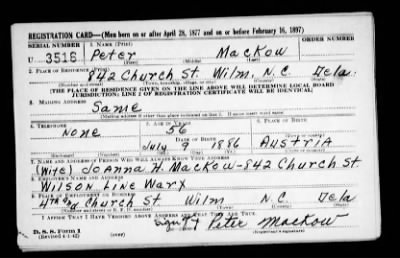 REGISTRATION CARD—(Men born on or after April 28, 1877 and on or before February 16, 1897)
SERIAL NUMBER 1. NAME (Print)
U 3516 Peter Mackow
(First) (Middle) (Last)
2. PLACE OF RESIDENCE (Print)
842 Church St. Wilm, N.C. Dela.
[THE PLACE OF RESIDENCE GIVEN ON THE LINE ABOVE WILL DETERMINE LOCAL BOARD
JURISDICTION; LINE 2 OF REGISTRATION CERTIFICATE WILL BE IDENTICAL]
3. MAILING ADDRESS
Same
[Mailing address if other than place indicated on line 2. If same insert word same]
4. TELEPHONE 5. AGE IN YEARS 6. PLACE OF BIRTH
None 56
DATE OF BIRTH
July 9 1886 Austria
7. NAME AND ADDRESS OF PERSON WHO WILL ALWAYS KNOW YOUR ADDRESS
(Wife) Joanna H. Mackow-842 Church St
8. EMPLOYER'S NAME AND ADDRESS
Wilson Line Warx
9. PLACE OF EMPLOYMENT OR BUSINESS
4th and Church St Wilm N.C. Dela
I AFFIRM THAT I HAVE VERIFIED ABOVE ANSWERS AND THAT THEY ARE TRUE.
D. S. S. Form 1 Peter Mackow
(Revised 4-1-42) (Registrant's signature)